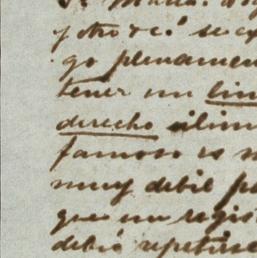 y otro & c.ª se
go plenamen
tener un
derecho ilim
famoso es
muy debil p
que un regis
debió repetirse